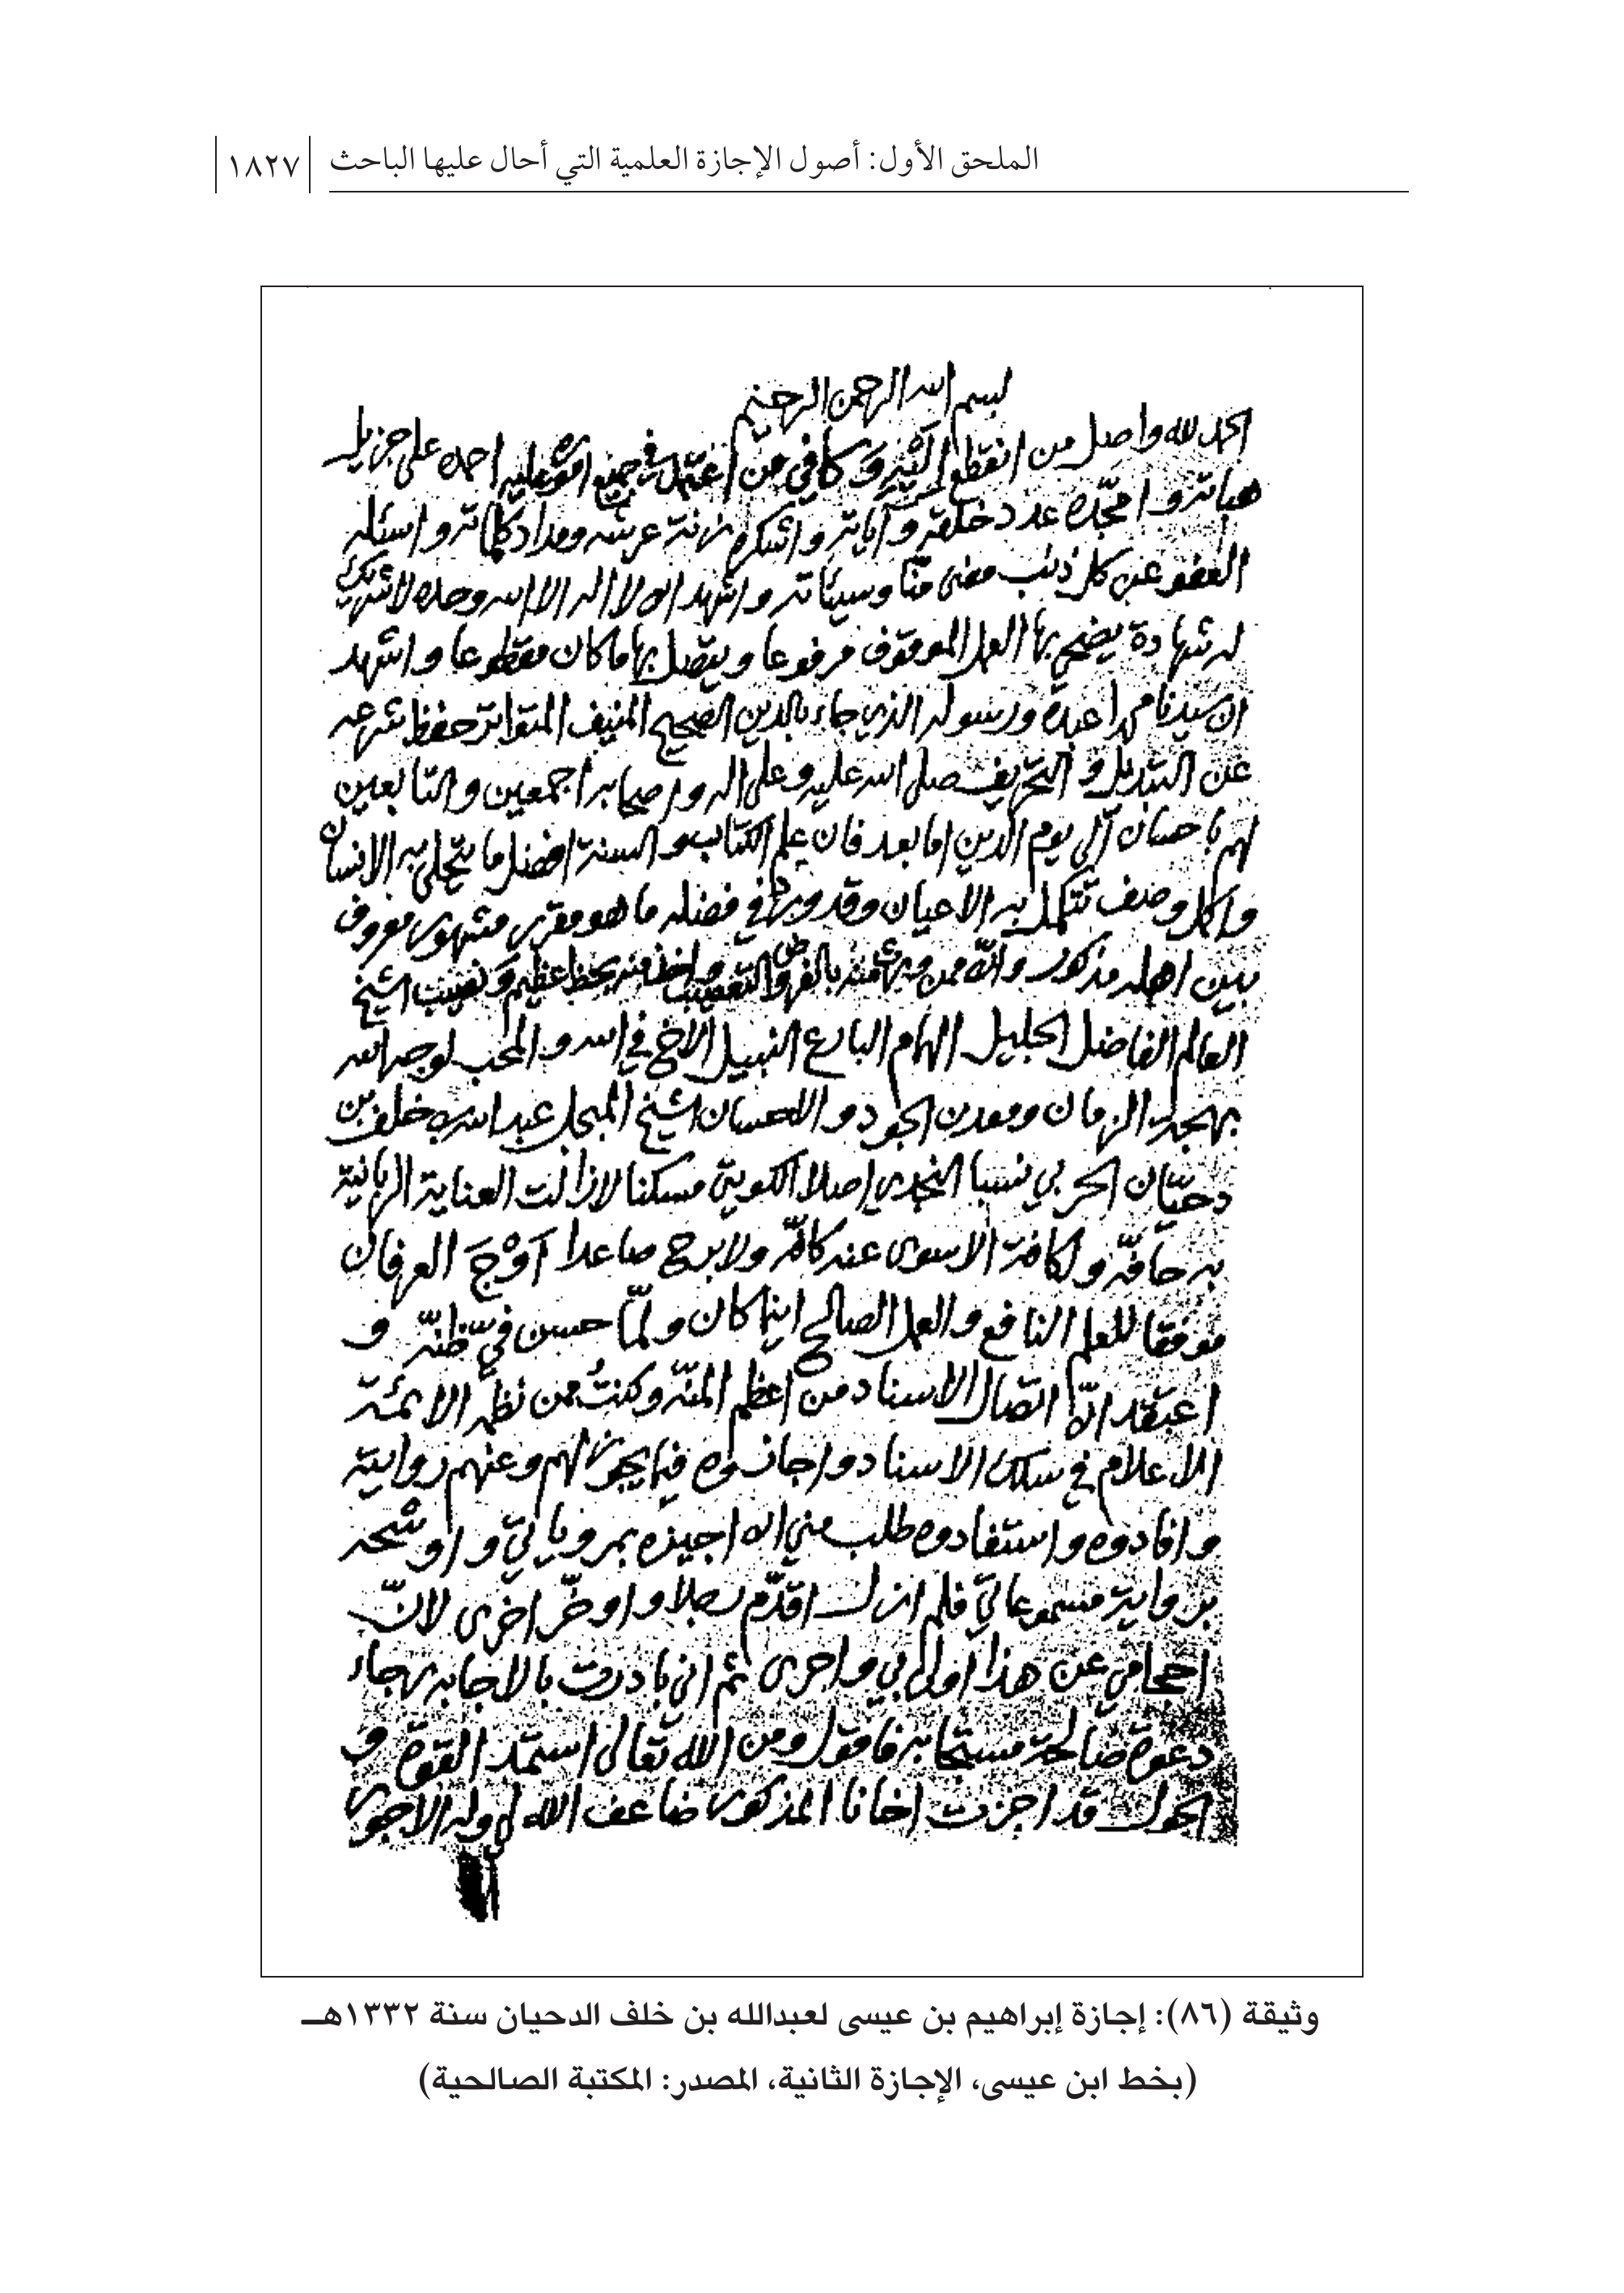 الملحق الأول: أصول الإجازة العلمية التي أحال عليها الباحث ١٨٢٧
بسم الله الرحمن الرحيم
الحمد لله واصل من انقطع اليه وكافي من اعتمد في جميع اموره عليه احمده على جزيل
هباته وامجّده عدد خلقه وآياته واشكره زنة عرشه ومداد كلماته واسئله
العفو عن كل ذنب مضى منّا وسيئاته واشهد ان لا اله الا الله وحده لا شريك
له شهادة يضحي بها العمل الموقوف مرفوعا ويتصل بها ما كان مقطوعا واشهد
ان سيدنا محمدا عبده ورسوله الذي جاء بالدين الصحيح المنيف المتواتر حفظ شرعه
عن التبديل والتحريف صلى الله عليه وعلى اله واصحابه اجمعين والتابعين
لهم باحسان الى يوم الدين اما بعد فان علم الكتاب والسنة افضل ما يتحلى به الانسان
واكمل وصف تتكمل به الاعيان وقد ورد في فضله ما هو مقرر مشهور معروف
بين اهله مذكور وانّه ممن منه بالفرض والتعصيب واخذ منه بحظ عظيم ونصيب الشيخ
العالم الفاضل الجليل الهمام البارع النبيل الاخ في الله والمحب لوجه الله
بهجة الزمان ومعدن الجود والاحسان الشيخ المبجل عبد الله بن خلف بن
دحيّان الحربي نسبا النجدي اصلا الكويتي مسكنا لازالت العناية الربانية
به حافّه ولكافة الاسوى عنه كافّه ولا برح صاعدا آوْجَ العرفان
موفقا للعلم النافع والعمل الصالح اينما كان ولمّا حسن فيّ ظنّه و
اعتقد انّ اتصال الاسناد من اعظم المنّه وكنتُ ممن نظمه الائمة
الاعلام في سلك الاسناد واجازوه فيما يجوز لهم وعنهم روايته
وافادوه واستفادوه طلب مني ان اجيزه بمروياتي و
برواية مسموعاتي فلم ازل اقدّم رجلا واوخّر اخرى لانّ
احجامي عن هذا اولى بي واحرى ثم اني بادرت بالاجابه رجاء
دعوة صالحة مستجابه فاقول ومن الله تعالى استمد القوة و
الحول قد اجزت اخانا المذكور ضاعف الله لي وله الاجور
وثيقة (٨٦): إجازة إبراهيم بن عيسى لعبدالله بن خلف الدحيان سنة ١٣٣٢هـ
(بخط ابن عيسى، الإجازة الثانية، المصدر: المكتبة الصالحية)